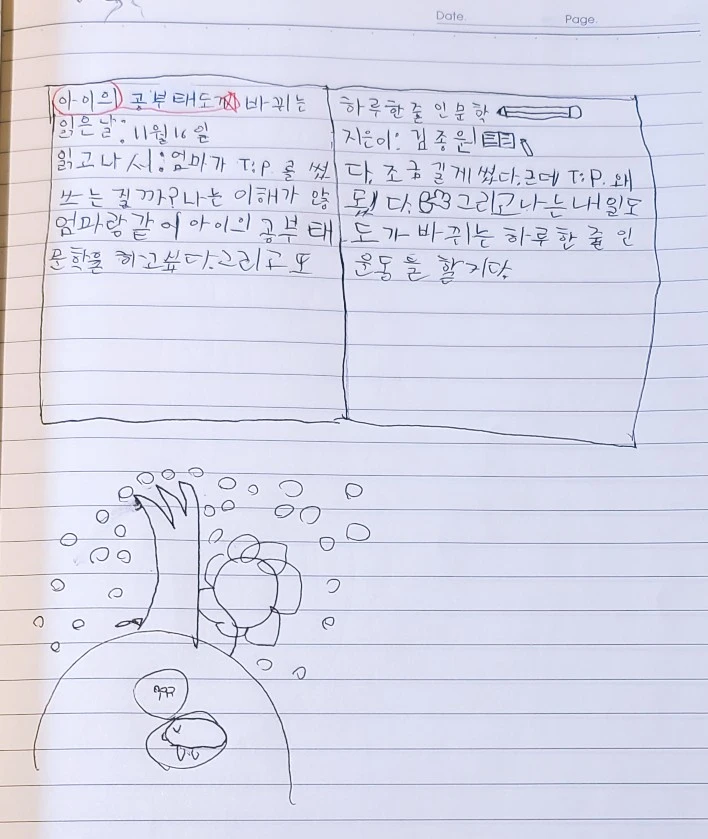 Date. Page.
아이의 공부태도가 바뀌는 하루한줄 인문학
읽은날: 11월 16일 지은이: 김종원
읽고나서: 엄마가 T:P를 썼다. 조금 길게 썼다. 근데 T:P. 왜
쓰는 걸까? 나는 이해가 않됬다. 그리고 나는 내일도
엄마랑 같이 아이의 공부태도가 바뀌는 하루한줄 인
문학을 하고싶다. 그리고 또 운동을 할거다.